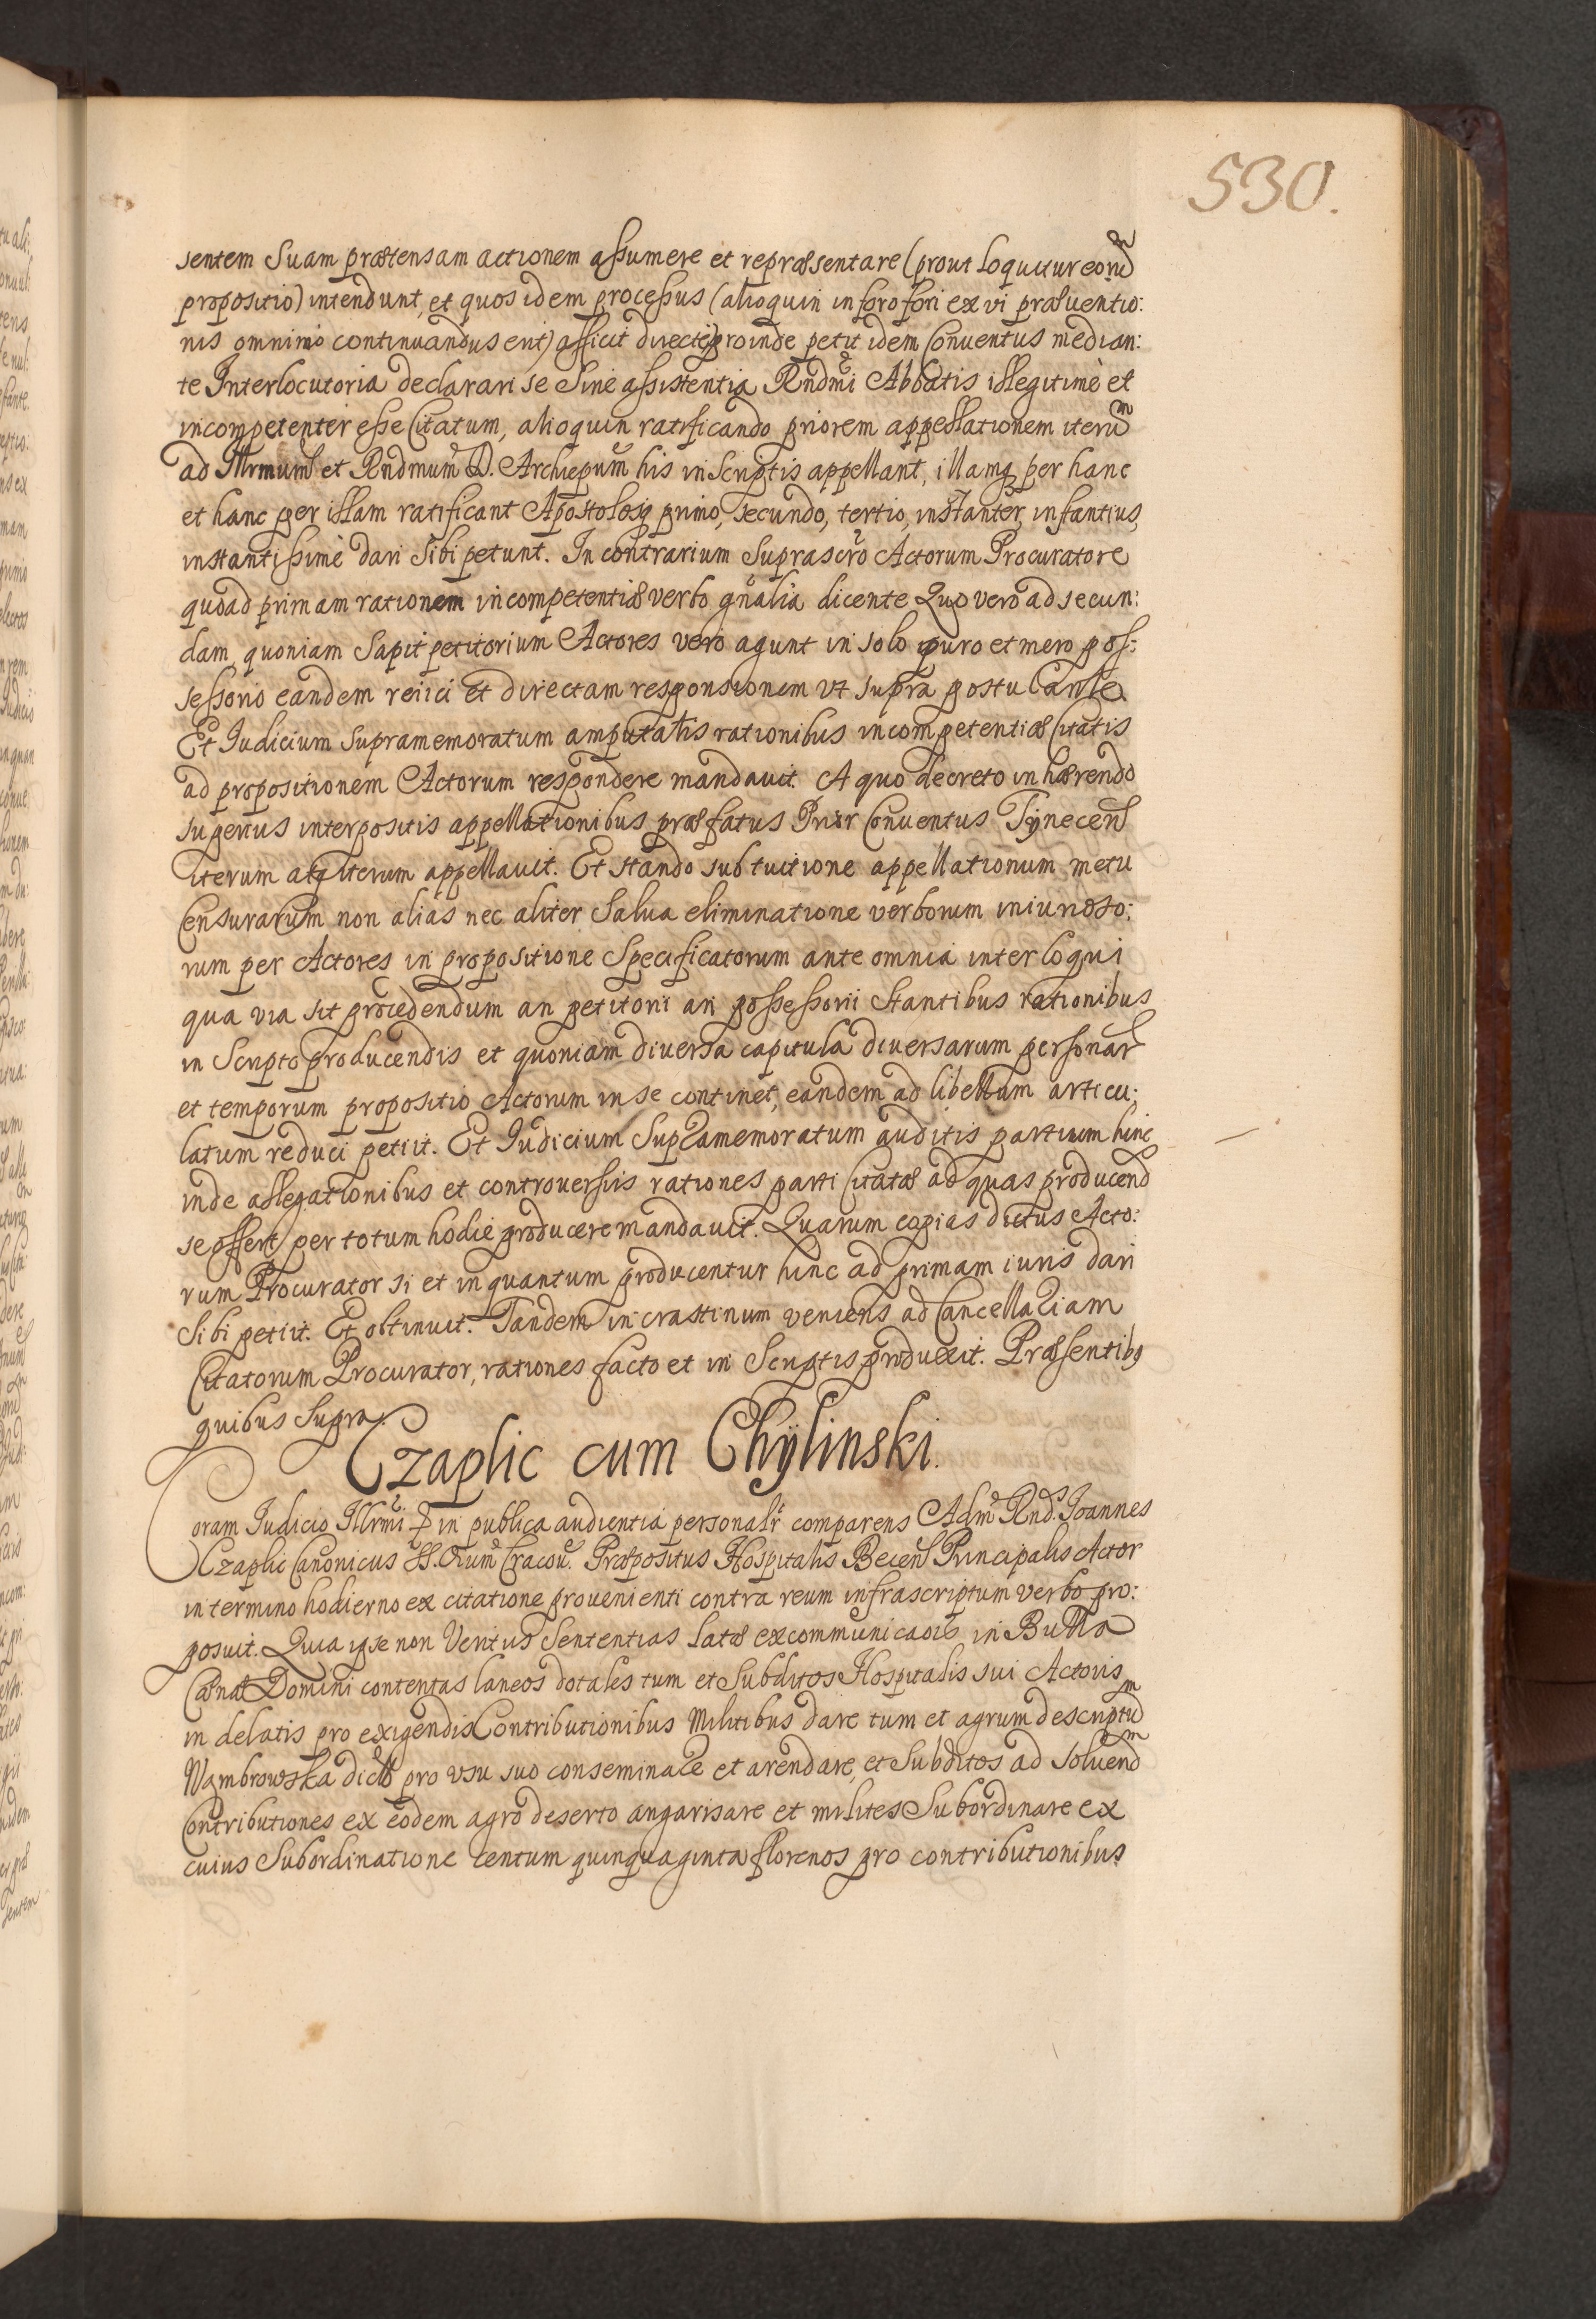 530.
sentem Suam prætensam actionem assumere et repræsentare (prout loquitur eorū
propositio) intendunt, et quos idem processus (alioquin in foro fori ex vi præuentio:
nis omnimo continuandus erit) afficit directè, proinde petit idem Conuentus median:
te Interlocutoria declarari se Sine assistentia Rndmi Abbatis illegitimè et
incompetenter esse Citatum, alioquin ratificando priorem appellationem iterū
ad Illrmum et Rndmum D. Archiepum his in Scriptis appellant, illamq per hanc
et hanc per illam ratificant Apostolosq primo, secundo, tertio, instanter, instantius,
instantissimè dari Sibi petunt. In contrarium Suprascro Actorum Procuratore
quoad primam rationem incompetentiæ verbo gnalia dicente Quo vero ad secun:
dam, quoniam Sapit petitorium Actores vero agunt in solo puro et mero pos:
sessorio eandem reiici et directam responsionem vt supra postulante
Et Iudicium supramemoratum amputatis rationibus incompetentiæ Citatis
ad propositionem Actorum respondere mandauit. A quo decreto inhærendo
superius interpositis appellationibus præfatus Prior Conuentus Tÿnecens
iterum atq iterum appellauit. Et stando sub tuitione appellationum metu
Censurarum non alias nec aliter Salua eliminatione verborum iniurioso:
rum per Actores in propositione Specificatorum ante omnia interloqui
qua via sit procedendum an petitorii an possessorii Stantibus rationibus
in Scripto producendis et quoniam diuersa capitula diuersarum personar
et temporum propositio Actorum in se continet, eandem ad libellum articu:
latum reduci petiit. Et Iudicium Supramemoratum auditis partium hinc
inde allegationibus et controuersiis rationes parti Citatæ ad quas producend
se offert per totum hodie producere mandauit. Quarum copias dictus Acto:
rum Procurator si et in quantum producentur hinc ad primam iuris dari
Sibi petiit. Et obtinuit. Tandem in crastinum veniens ad Cancellariam
Citatorum Procurator, rationes facto et in Scriptis produxit. Præsentibq
quibus Supra.
Czaplic cum Chÿlinski.
Coram Iudicio Illrmi D in publica audientia personalr comparens Adm Rnd. Ioannes
Czaplic Canonicus SS. Oium Cracou. Præpositus Hospitalis Becens Principalis Actor
in termino hodierno ex citatione prouenienti contra reum infrascriptum verbo pro:
posuit. Quia ipse non Veritus Sententias latæ excommunicaois in Bulla
Cænæ Domini contentas laneos dotales tum et Subditos Hospitalis sui Actoris
in delatis pro exigendis Contributionibus Militibus dare tum et agrum descriptū
Wąmbrowska dictū pro vsu suo conseminare et arendare, et Subditos ad soluend
Contributiones ex eodem agro deserto angarisare et milites Subordinare ex
cuius Subordinatione centum quinquaginta florenos pro contributionibus